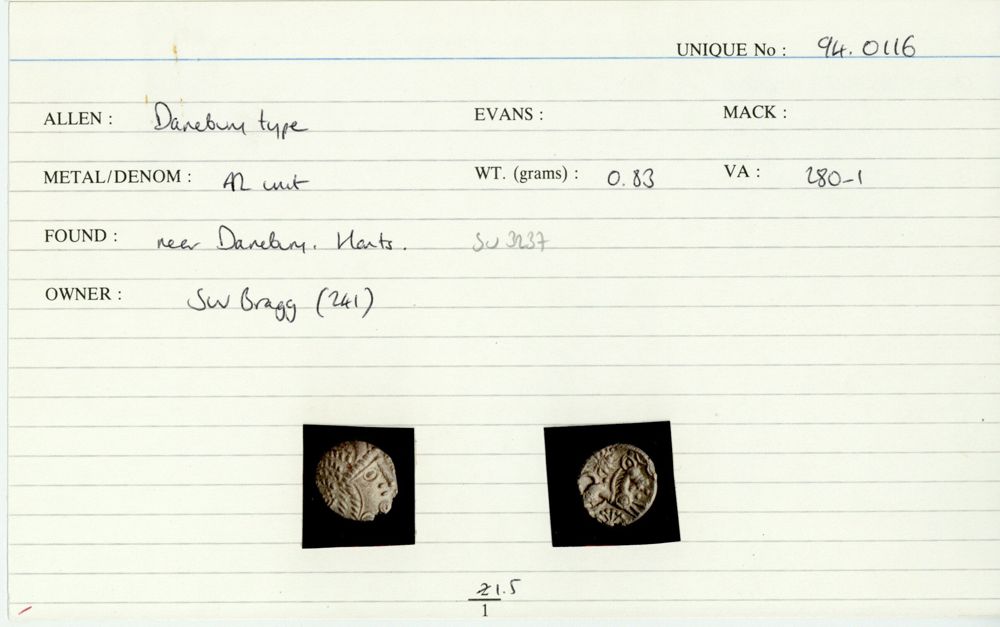 UNIQUE No : 94.0116
ALLEN : Danebury type EVANS : MACK :
METAL/DENOM : AR unit WT. (grams) : 0.83 VA : 280-1
FOUND : near Danebury. Hants. SU 3237
OWNER : SW Bragg (241)
21.5
1